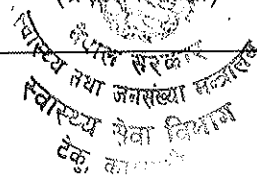 नेपाल सरकार
स्वास्थ्य तथा जनसंख्या मन्त्रालय
स्वास्थ्य सेवा विभाग
टेकु,